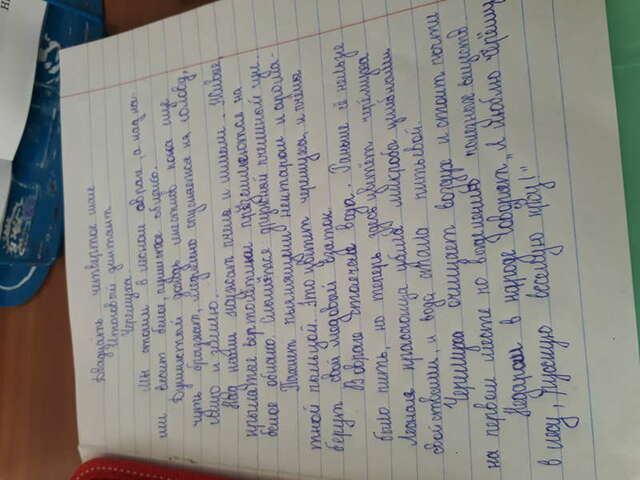 Двадцать четвертое мая
Итоговый диктант
Черемуха
Мы стоим в лесном овраге, а над на-
ми весит белое, пушистое облако.
Душистый дождь листиков пока еще
чуть брызжат, медленно опускается на голову,
лицо и землю.
Над нами жужжат пчелы и шмели. Живые,
крылатые вертолетики приземляются на
белое облако. Слышется дружный пчелиный гул.
Пахнет пьянящим нектаром и арома-
тной пыльцой. Это цветет черемуха, и пчелы
берут свой медовый взяток.
В овраге стоячая вода. Раньше её нельзя
было пить, но теперь здесь цветёт черёмуха
Лесная красавица убила микроба целебными
свойствами, и вода стала питьевой.
Черемуха очищает воздух и стоит почти
на первом месте по выделению полезных веществ
Недаром в народе говорят „Я люблю черёму
в лесу, русскую веселую красу!"